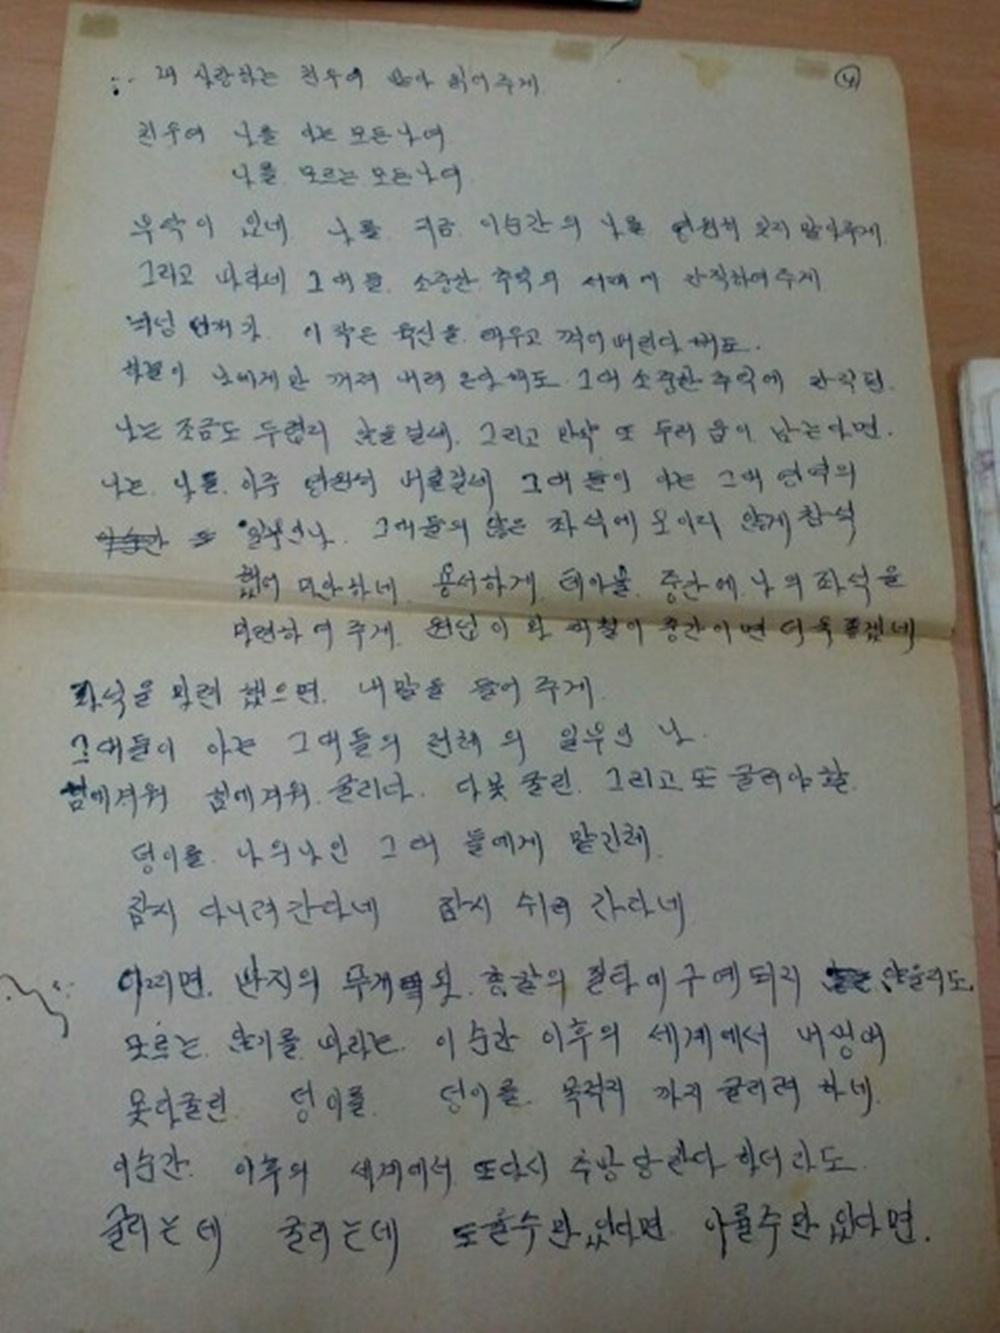 내 사랑하는 친우여 받아 읽어주게. ④
친우여 나를 아는 모든 나여
나를 모르는 모든 나여
부탁이 있네. 나를, 지금 이 순간의 나를 영원히 잊지 말아주게.
그리고 바라네 그대들 소중한 추억의 서재에 간직하여주게
뇌성 번개가 이 작은 육신을 태우고 꺾어버린다해도.
하늘이 나에게만 꺼져 내려 온다해도 그대 소중한 추억에 간직된
나는 조금도 두렵지 않을걸세. 그리고 만약 또 두려움이 남는다면.
나는 나를 아주 영원히 버릴걸세 그대들이 아는 그대 영역의
일부인 나. 그대들의 앉은 좌석에 보이지 않게 참석
했어 미안하네. 용서하게. 테이블 중간에 나의 좌석을
마련하여 주게. 원섭이와 재철이 중간이면 더욱 좋겠네
좌석을 마련 했으면. 내말을 들어 주게.
그대들이 아는 그대들의 전체의 일부인 나.
힘에겨워 힘에겨워 굴리다. 다 못 굴린. 그리고 또 굴려야 할.
덩이를 나의 나인 그대들에게 맡긴채.
잠시 다니러 간다네 잠시 쉬러 간다네
어쩌면. 반지의 무게와 총칼의 질타에 구애되지 않을지도.
모르는. 않기를 바라는 이 순간 이후의 세계에서 내생애
못다굴린 덩이를 덩이를 목적지 까지 굴리려 하네.
이순간. 이후의 세계에서 또다시 추방 당한다 하더라도.
굴리는데 굴리는데 도울수만 있다면 이룰수만 있다면.